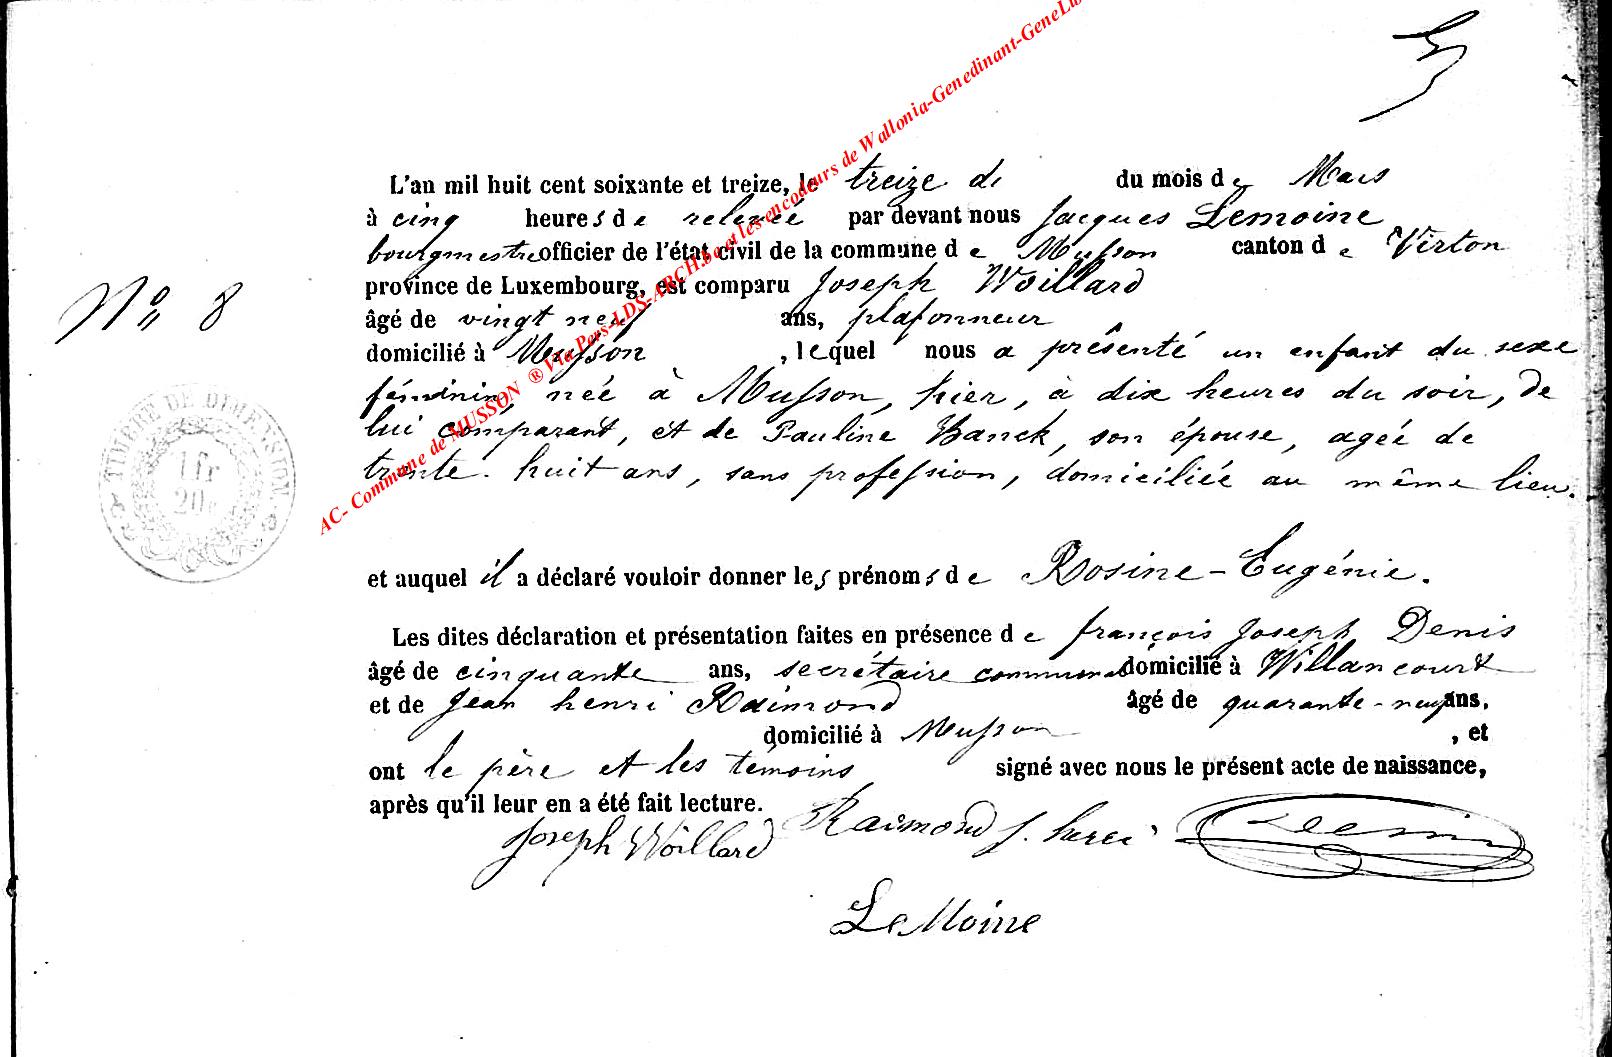 L'an mil huit cent soixante et treize, le treize de du mois de Mars
à cinq heures de relevée par devant nous Jacques Lemoine
bourgmestre officier de l'état civil de la commune de Musson canton de Virton
province de Luxembourg, est comparu Joseph Woillard
N° 8
âgé de vingt neuf ans, plafonneur
domicilié à Musson, lequel nous a présenté un enfant du sexe
féminin, née à Musson, hier, à dix heures du soir, de
lui comparant, et de Pauline Banck, son épouse, agée de
trente-huit ans, sans profession, domiciliée au même lieu.
TIMBRE DE DIMENSION.
1 fr
20c
AC- Commune de MUSSON ® Via Pers-LDS-ARCH.be et les encodeurs de Wallonia-Genedinant-GeneLux
et auquel il a déclaré vouloir donner les prénoms de Rosine-Eugénie.
Les dites déclaration et présentation faites en présence de françois Joseph Denis
âgé de cinquante ans, secrétaire communal domicilié à Willancourt
et de Jean henri Raimond âgé de quarante-neuf ans,
domicilié à Musson, et
ont le père et les témoins signé avec nous le présent acte de naissance,
après qu'il leur en a été fait lecture.
Joseph Woillard Raimond J. henri Denis
LeMoine